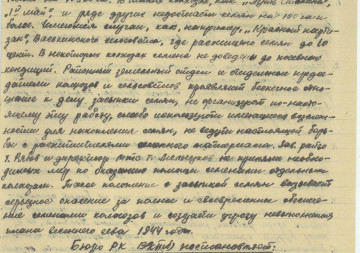 "1 мая" и ряде других недостает семян на 10% и более. Имеются случаи, как, например, "Красный партизан", сельсовета, где расхищено семян до 20 цент. В некоторых колхозах семена не доведены до посевных кондиций. Районный земельный отдел и отдельные председатели колхозов и сельсоветов проявляют
шение к делу засыпки семян, не организуют по-настоящему эту работу, слабо используют имеющиеся возможности для накопления семян, не ведут настоящей борьбы с семенного материала. Зав. райзо
т. и директор МТС т. не приняли необходимых мер по оказанию помощи семенами отдельным
колхозам. Такое положение с засыпкой семян вызывает
серьезное опасение за полное и своевременное обеспечение семенами колхозов и создает угрозу невыполнения
плана весеннего сева 1944 года.
Бюро РК ВКП(б) постановляет: